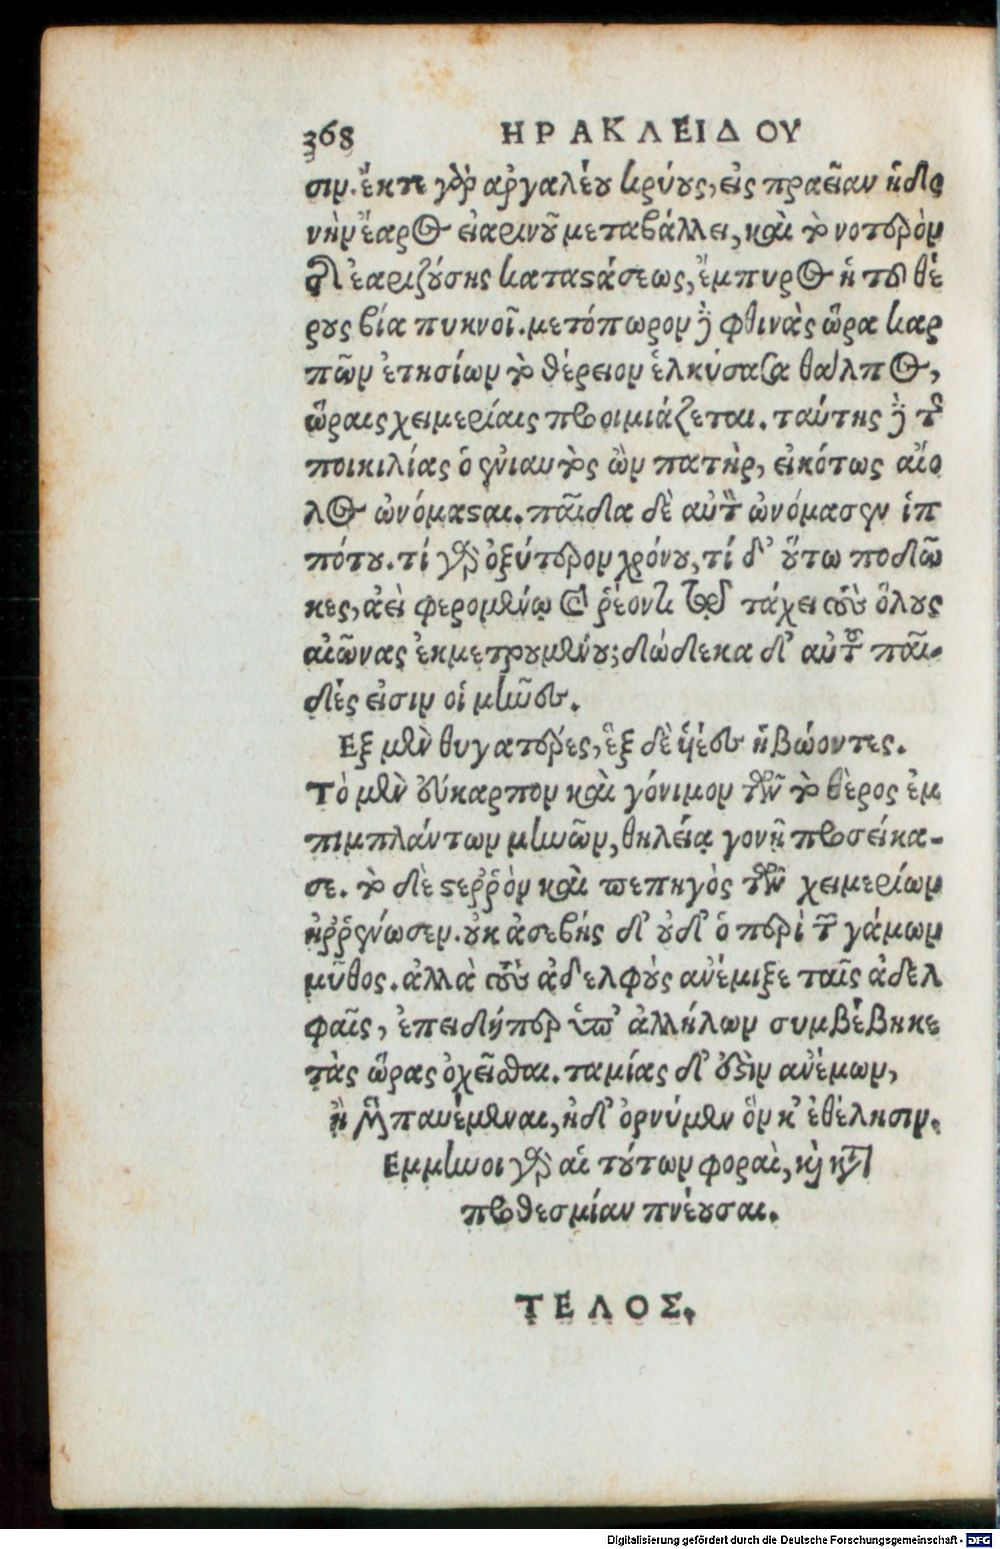 368 ΗΡΑΚΛΕΙΔΟΥ
σιν. ἔκ τε γὰρ ἀργαλέου κρύους, εἰς πραεῖαν ἡδο
νὴν ἔαρος εἰαρινοῦ μεταβάλλει, καὶ τὸ νοτερὸν
τῆς ἐαριζούσης καταστάσεως, ἔμπυρος ἡ τοῦ θέ
ρους βία πυκνοῖ. μετόπωρον δὲ φθινὰς ὥρα καρ
πῶν ἐτησίων τὸ θέρειον ἑλκύσασα θάλπος,
ὥραις χειμερίαις προοιμιάζεται. ταύτης δὲ τῆς
ποικιλίας ὁ ἐνιαυτὸς ὢν πατὴρ, εἰκότως αἴο
λος ὠνόμασται. παῖδα δὲ αὐτὸν ὠνόμασεν ἱπ
πότου. τί γὰρ ὀξύτερον χρόνου, τί δ' οὕτω ποδῶ
κες, ἀεὶ φερομένῳ καὶ ῥέοντι τῷ τάχει τοὺς ὅλους
αἰῶνας ἐκμετρουμένου; δώδεκα δ' αὐτοῦ παῖ
δές εἰσιν οἱ μῆνες.
Εξ μὲν θυγατέρες, ἓξ δὲ υἱέες ἡβώοντες.
Τὸ μὲν εὔκαρπον καὶ γόνιμον τῶν τὸ θέρος ἐμ
πιμπλάντων μηνῶν, θηλείᾳ γονῇ προσείκα-
σε. τὸ δὲ στεῤῥὸν καὶ πεπηγὸς τῶν χειμερίων
ἠῤῥένωσεν. οὐκ ἀσεβής δ' οὐδ' ὁ περὶ τῶν γάμων
μῦθος. ἀλλὰ τοὺς ἀδελφοὺς ἀνέμιξε ταῖς ἀδελ
φαῖς, ἐπειδήπερ ὑπ' ἀλλήλων συμβέβηκε
τὰς ὥρας ὀχεῖσθαι. ταμίας δ' ἐστὶν ἀνέμων,
ἢ μὲν παυέμεναι, ἠδ' ὀρνύμεν ὅν κ' ἐθέλησιν.
Εμμηνοι γὰρ αἱ τούτων φοραὶ, καὶ κατὰ
προθεσμίαν πνέουσαι.
ΤΕΛΟΣ.
Digitalisierung gefördert durch die Deutsche Forschungsgemeinschaft - DFG